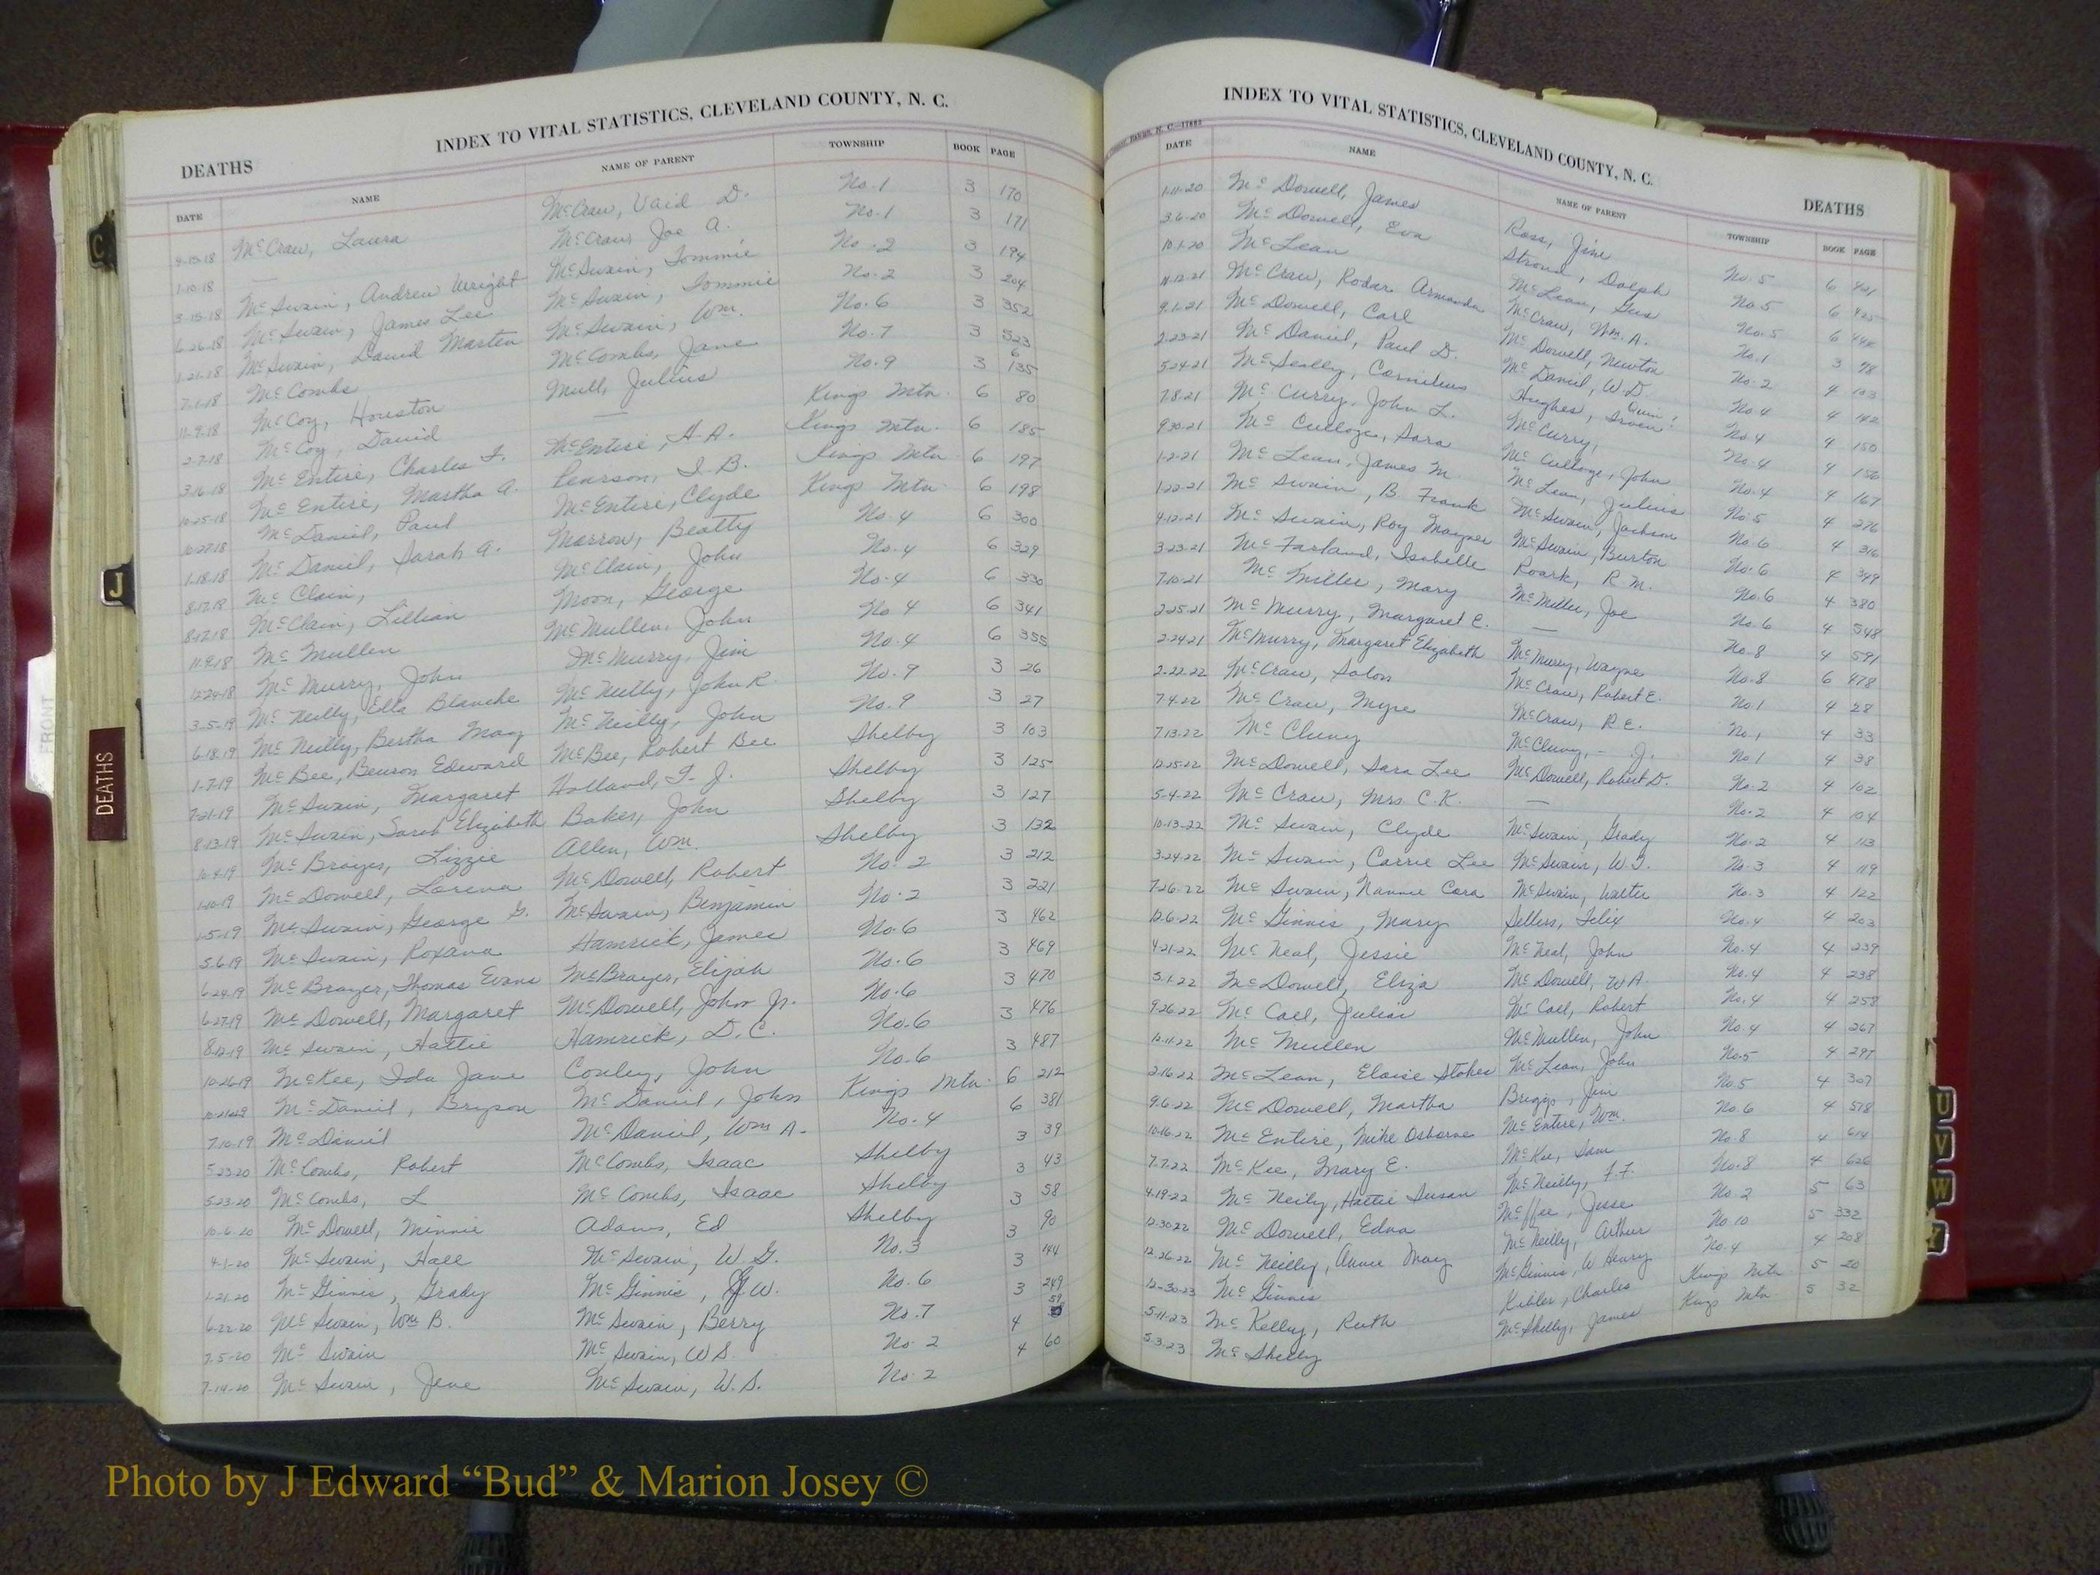 INDEX TO VITAL STATISTICS, CLEVELAND COUNTY, N. C.
DEATHS
DATE NAME NAME OF PARENT TOWNSHIP BOOK PAGE
9-13-18 McCraw, Laura McCraw, Vaid D. No. 1 3 170
1-10-18 — McCraw, Joe A. No. 1 3 171
3-15-18 McSwain, Andrew Wright McSwain, Tommie No. 2 3 194
6-26-18 McSwain, James Lee McSwain, Tommie No. 2 3 204
1-21-18 McSwain, David Marten McSwain, Wm. No. 6 3 352
7-1-18 McCombs McCombs, Jane No. 7 3 523
11-9-18 McCoy, Houston Mull, Julius No. 9 3 6 135
2-7-18 McCoy, David — Kings Mtn. 6 80
3-16-18 McEntire, Charles F. McEntire, H.A. Kings Mtn. 6 185
10-25-18 McEntire, Martha A. Pearson, I. B. Kings Mtn 6 197
10-27-18 McDaniel, Paul McEntire, Clyde Kings Mtn 6 198
1-18-18 McDaniel, Sarah A. Marrow, Beatty No. 4 6 300
8-17-18 McClain, McClain, John No. 4 6 329
8-17-18 McClain, Lillian Moon, George No. 4 6 330
11-9-18 McMullen McMullen, John No 4 6 341
12-24-18 McMurry, John McMurry, Jim No. 4 6 355
3-5-19 McNeilly, Ella Blanche McNeilly, John R. No. 9 3 26
6-18-19 McNeilly, Bertha May McNeilly, John No. 9 3 27
1-7-19 McBee, Benson Edward McBee, Robert Bee Shelby 3 103
7-21-19 McSwain, Margaret Holland, F. J. Shelby 3 125
8-13-19 McSwain, Sarah Elizabeth Baker, John Shelby 3 127
10-4-19 McBrayer, Lizzie Allen, Wm. Shelby 3 132
1-10-19 McDowell, Lorena McDowell, Robert No. 2 3 212
1-5-19 McSwain, George G. McSwain, Benjamin No. 2 3 221
5-6-19 McSwain, Roxana Hamrick, James No. 6 3 462
6-24-19 McBrayer, Thomas Evans McBrayer, Elijah No. 6 3 469
6-27-19 McDowell, Margaret McDowell, John Jr. No. 6 3 470
8-12-19 McSwain, Hattie Hamrick, D. C. No. 6 3 476
10-26-19 McKee, Ida Jane Conley, John No. 6 3 487
McDaniel, Bryson McDaniel, John Kings Mtn. 6 212
7-10-19 McDaniel McDaniel, Wm A. No. 4 6 381
5-23-20 McCombs, Robert McCombs, Isaac Shelby 3 39
5-23-20 McCombs, L McCombs, Isaac Shelby 3 43
10-6-20 McDowell, Minnie Adams, Ed Shelby 3 58
4-1-20 McSwain, Hall McSwain, W. G. No. 3 3 90
1-21-20 McGinnis, Grady McGinnis, G.W. No. 6 3 144
6-22-20 McSwain, Wm B. McSwain, Berry No. 7 3 249
7-5-20 McSwain McSwain, W S. No 2 4 59
7-14-20 McSwain, Jene McSwain, W. S. No. 2 4 60
INDEX TO VITAL STATISTICS, CLEVELAND COUNTY, N. C.
N. C.—17883
DEATHS
DATE NAME NAME OF PARENT TOWNSHIP BOOK PAGE
1-11-20 McDowell, James Ross, Jim No. 5 6 421
3-6-20 McDowell, Eva Stroud, Dolph No 5 6 425
10-1-20 McLean McLean, Gus No. 5 6 448
11-12-21 McCraw, Rodar Armanda McCraw, Wm. A. No. 1 3 98
9-1-21 McDowell, Carl McDowell, Newton No. 2 4 103
2-23-21 McDaniel, Paul D. McDaniel, W.D. No. 4 4 142
5-24-21 McSeally, Cornilius Hughes, No. 4 4 150
7-8-21 McCurry, John L. McCurry, No. 4 4 156
9-30-21 Sara John No. 4 4 167
1-2-21 McLean, James M McLean, Julius No. 5 4 276
1-22-21 McSwain, B Frank McSwain, Jackson No. 6 4 316
4-12-21 McSwain, Roy McSwain, Burton No. 6 4 349
3-23-21 McFarland, Isabelle Roark, R. M. No. 6 4 380
7-10-21 McMiller, Mary McMiller, Joe No. 6 4 548
2-25-21 McMurry, Margaret E. — No. 8 4 591
2-24-21 McMurry, Margaret Elizabeth McMurry, Wayne No. 8 6 478
2-22-22 McCraw, Solon McCraw, Robert E. No 1 4 28
7-4-22 McCraw, Myre McCraw, R.E. No. 1 4 33
7-13-22 McCluney McCluney, — J. No 1 4 38
12-25-22 McDowell, Sara Lee McDowell, Robert D. No. 2 4 102
5-4-22 McCraw, Mrs. C.K. — No. 2 4 104
10-13-22 McSwain, Clyde McSwain, Grady No. 2 4 113
3-24-22 McSwain, Carrie Lee McSwain, W.T. No. 3 4 119
7-26-22 McSwain, Nannie Cora McSwain, Walter No. 3 4 122
12-6-22 McGinnis, Mary Sellers, Felix No. 4 4 203
4-21-22 McNeal, Jessie McNeal, John No. 4 4 239
5-1-22 McDowell, Eliza McDowell, W A No. 4 4 238
9-26-22 McCall, Julian McCall, Robert No. 4 4 258
12-11-22 McMullen McMullen, John No. 4 4 267
2-16-22 McLean, Eloise Stokes McLean, John No. 5 4 297
9-6-22 McDowell, Martha Briggs, Jim No. 5 4 307
10-16-22 McEntire, Mike Osborne McEntire, Wm. No. 6 4 578
7-7-22 McKee, Mary E. McKee, Sam No. 8 4 614
4-19-22 McNeily, Hattie Susan McNeilly, F.F. No. 8 4 626
12-30-22 McDowell, Edna Jesse No. 2 5 63
12-26-22 McNeilly, Annie May McNeilly, Arthur No 10 5 332
12-30-23 McGinnis McGinnis, W Henry No. 4 4 208
5-11-23 McKelly, Ruth Kibler, Charles Kings Mtn 5 20
5-3-23 McShelly McShelly, James Kings Mtn 5 32
C
J
FRONT
DEATHS
U
V
W
Y
Photo by J Edward “Bud” & Marion Josey ©